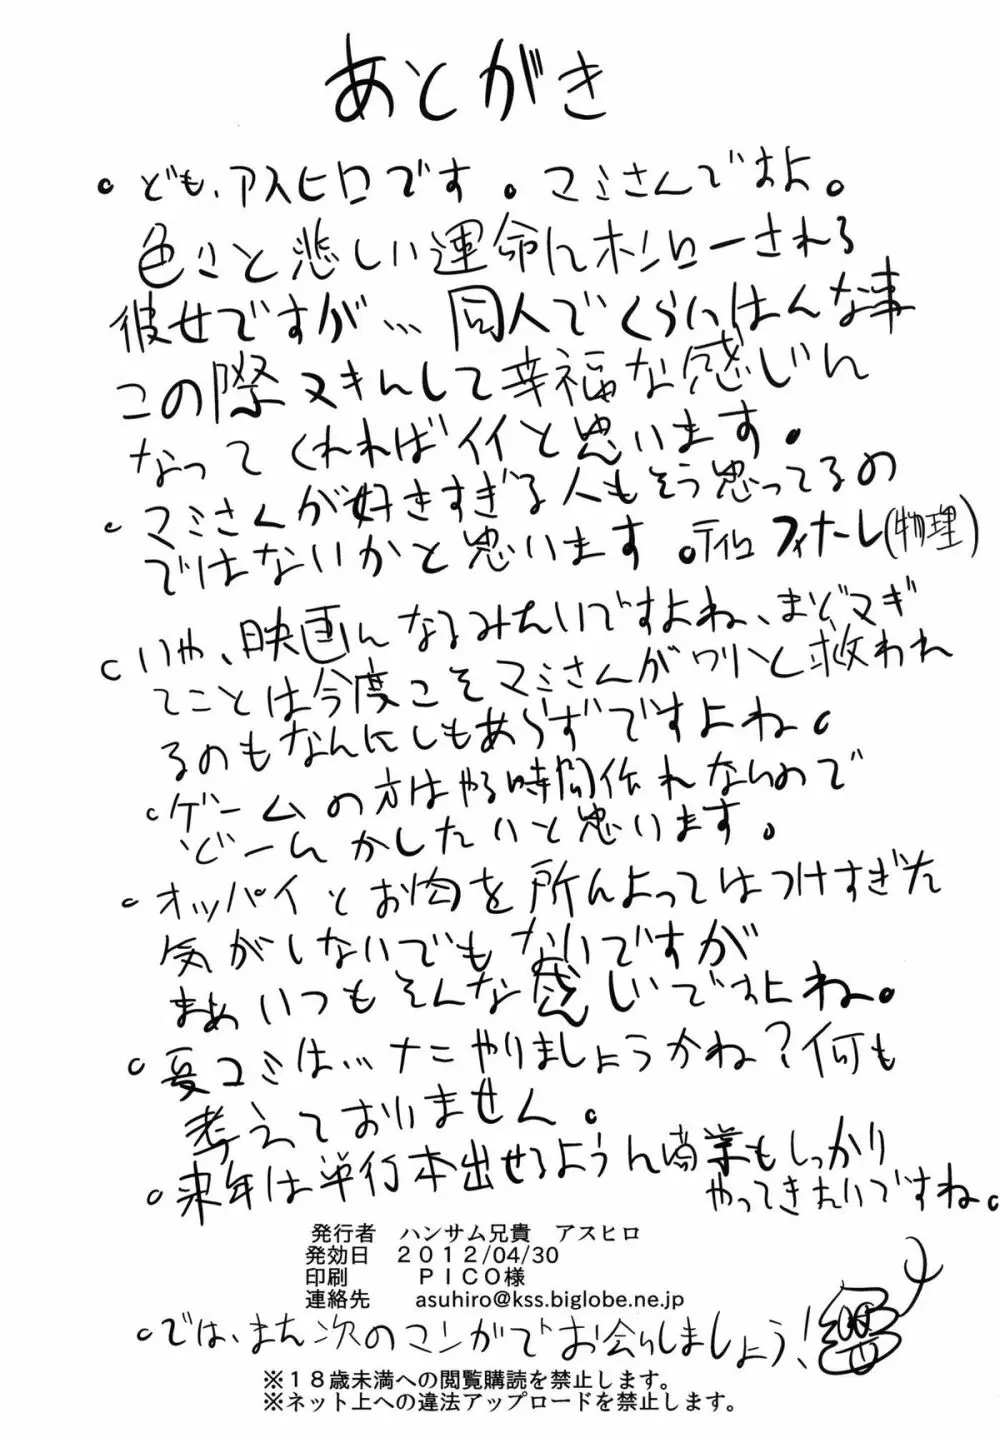 あとがき
。ども、アスヒロです。マミさんですよ。
色々と悲しい運命にホンローされる
彼女ですが…同人でくらいはんな事
この際ヌキんして幸福な感じに
なってくれればイイと思います。
。マミさんが好きすぎる人もそう思ってるの
ではないかと思います。ティロフィナーレ(物理)
。いや、映画になるみたいですよね、まどマギ
てことは今度こそマミさんがワリと救われ
るのもなんにしもあらずですよね。
。ゲームの方はやる時間作れないので
どーにかしたいと思います。
。オッパイとお肉を所によってはつけすぎた
気がしないでもないですが
まぁいつもそんな感じですよね。
。夏コミは…ナニやりましょうかね?何も
考えておりません。
。来年は単行本出せるように商業もしっかり
やってきたいですね。
発行者 ハンサム兄貴 アスヒロ
発効日 2012/04/30
印刷 PICO様
連絡先 asuhiro@kss.biglobe.ne.jp
。では、また次のマンガでお会いしましょう!
※18歳未満への閲覧購読を禁止します。
※ネット上への違法アップロードを禁止します。